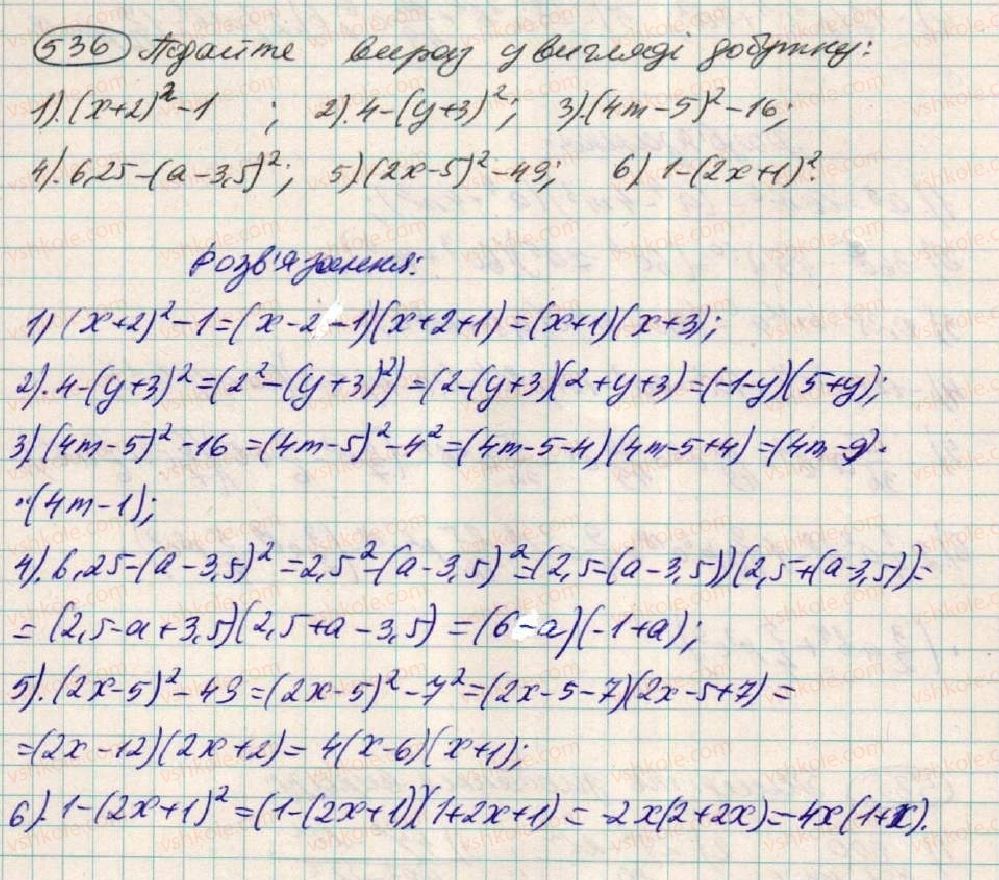 536 Подайте вираз у вигляді добутку:
1).(x+2)²-1 ; 2).4-(y+3)²; 3).(4m-5)²-16;
4).6,25-(a-3,5)²; 5).(2x-5)²-49; 6).1-(2x+1)².
Розв'язання:
1) (x+2)²-1=(x-2-1)(x+2+1)=(x+1)(x+3);
2).4-(y+3)²=(2²-(y+3)²)=(2-(y+3)(2+y+3)=(-1-y)(5+y);
3) (4m-5)²-16=(4m-5)²-4²=(4m-5-4)(4m-5+4)=(4m-9)·
·(4m-1);
4).6,25-(a-3,5)²=2,5²-(a-3,5)²=(2,5-(a-3,5))(2,5+(a-3,5))=
=(2,5-a+3,5)(2,5+a-3,5)=(6-a)(-1+a);
5).(2x-5)²-49=(2x-5)²-7²=(2x-5-7)(2x-5+7)=
=(2x-12)(2x+2)=4(x-6)(x+1);
6).1-(2x+1)²=(1-(2x+1))(1+2x+1)=-2x(2+2x)=-4x(1+x).